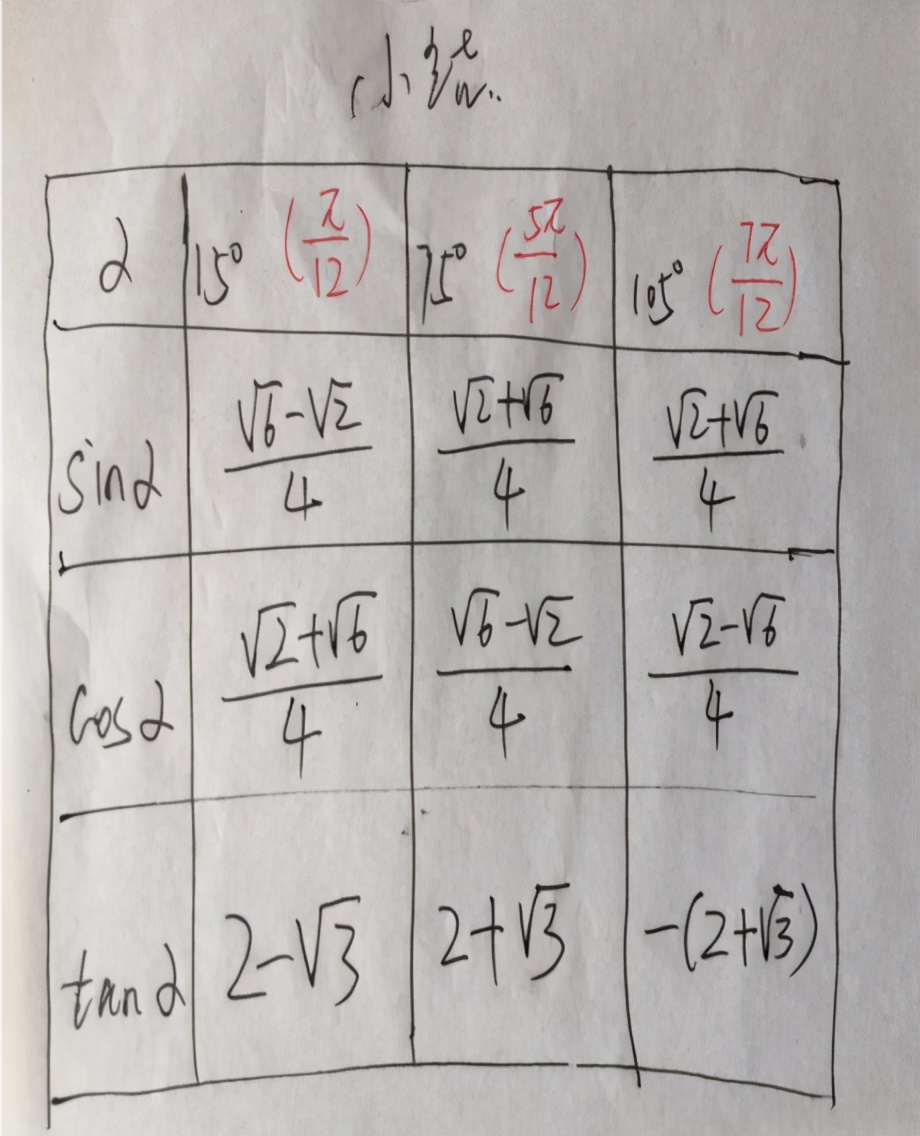 小结
α 15° (π/12) 75° (5π/12) 105° (7π/12)
sinα (√6-√2)/4 (√2+√6)/4 (√2+√6)/4
cosα (√2+√6)/4 (√6-√2)/4 (√2-√6)/4
tanα 2-√3 2+√3 -(2+√3)